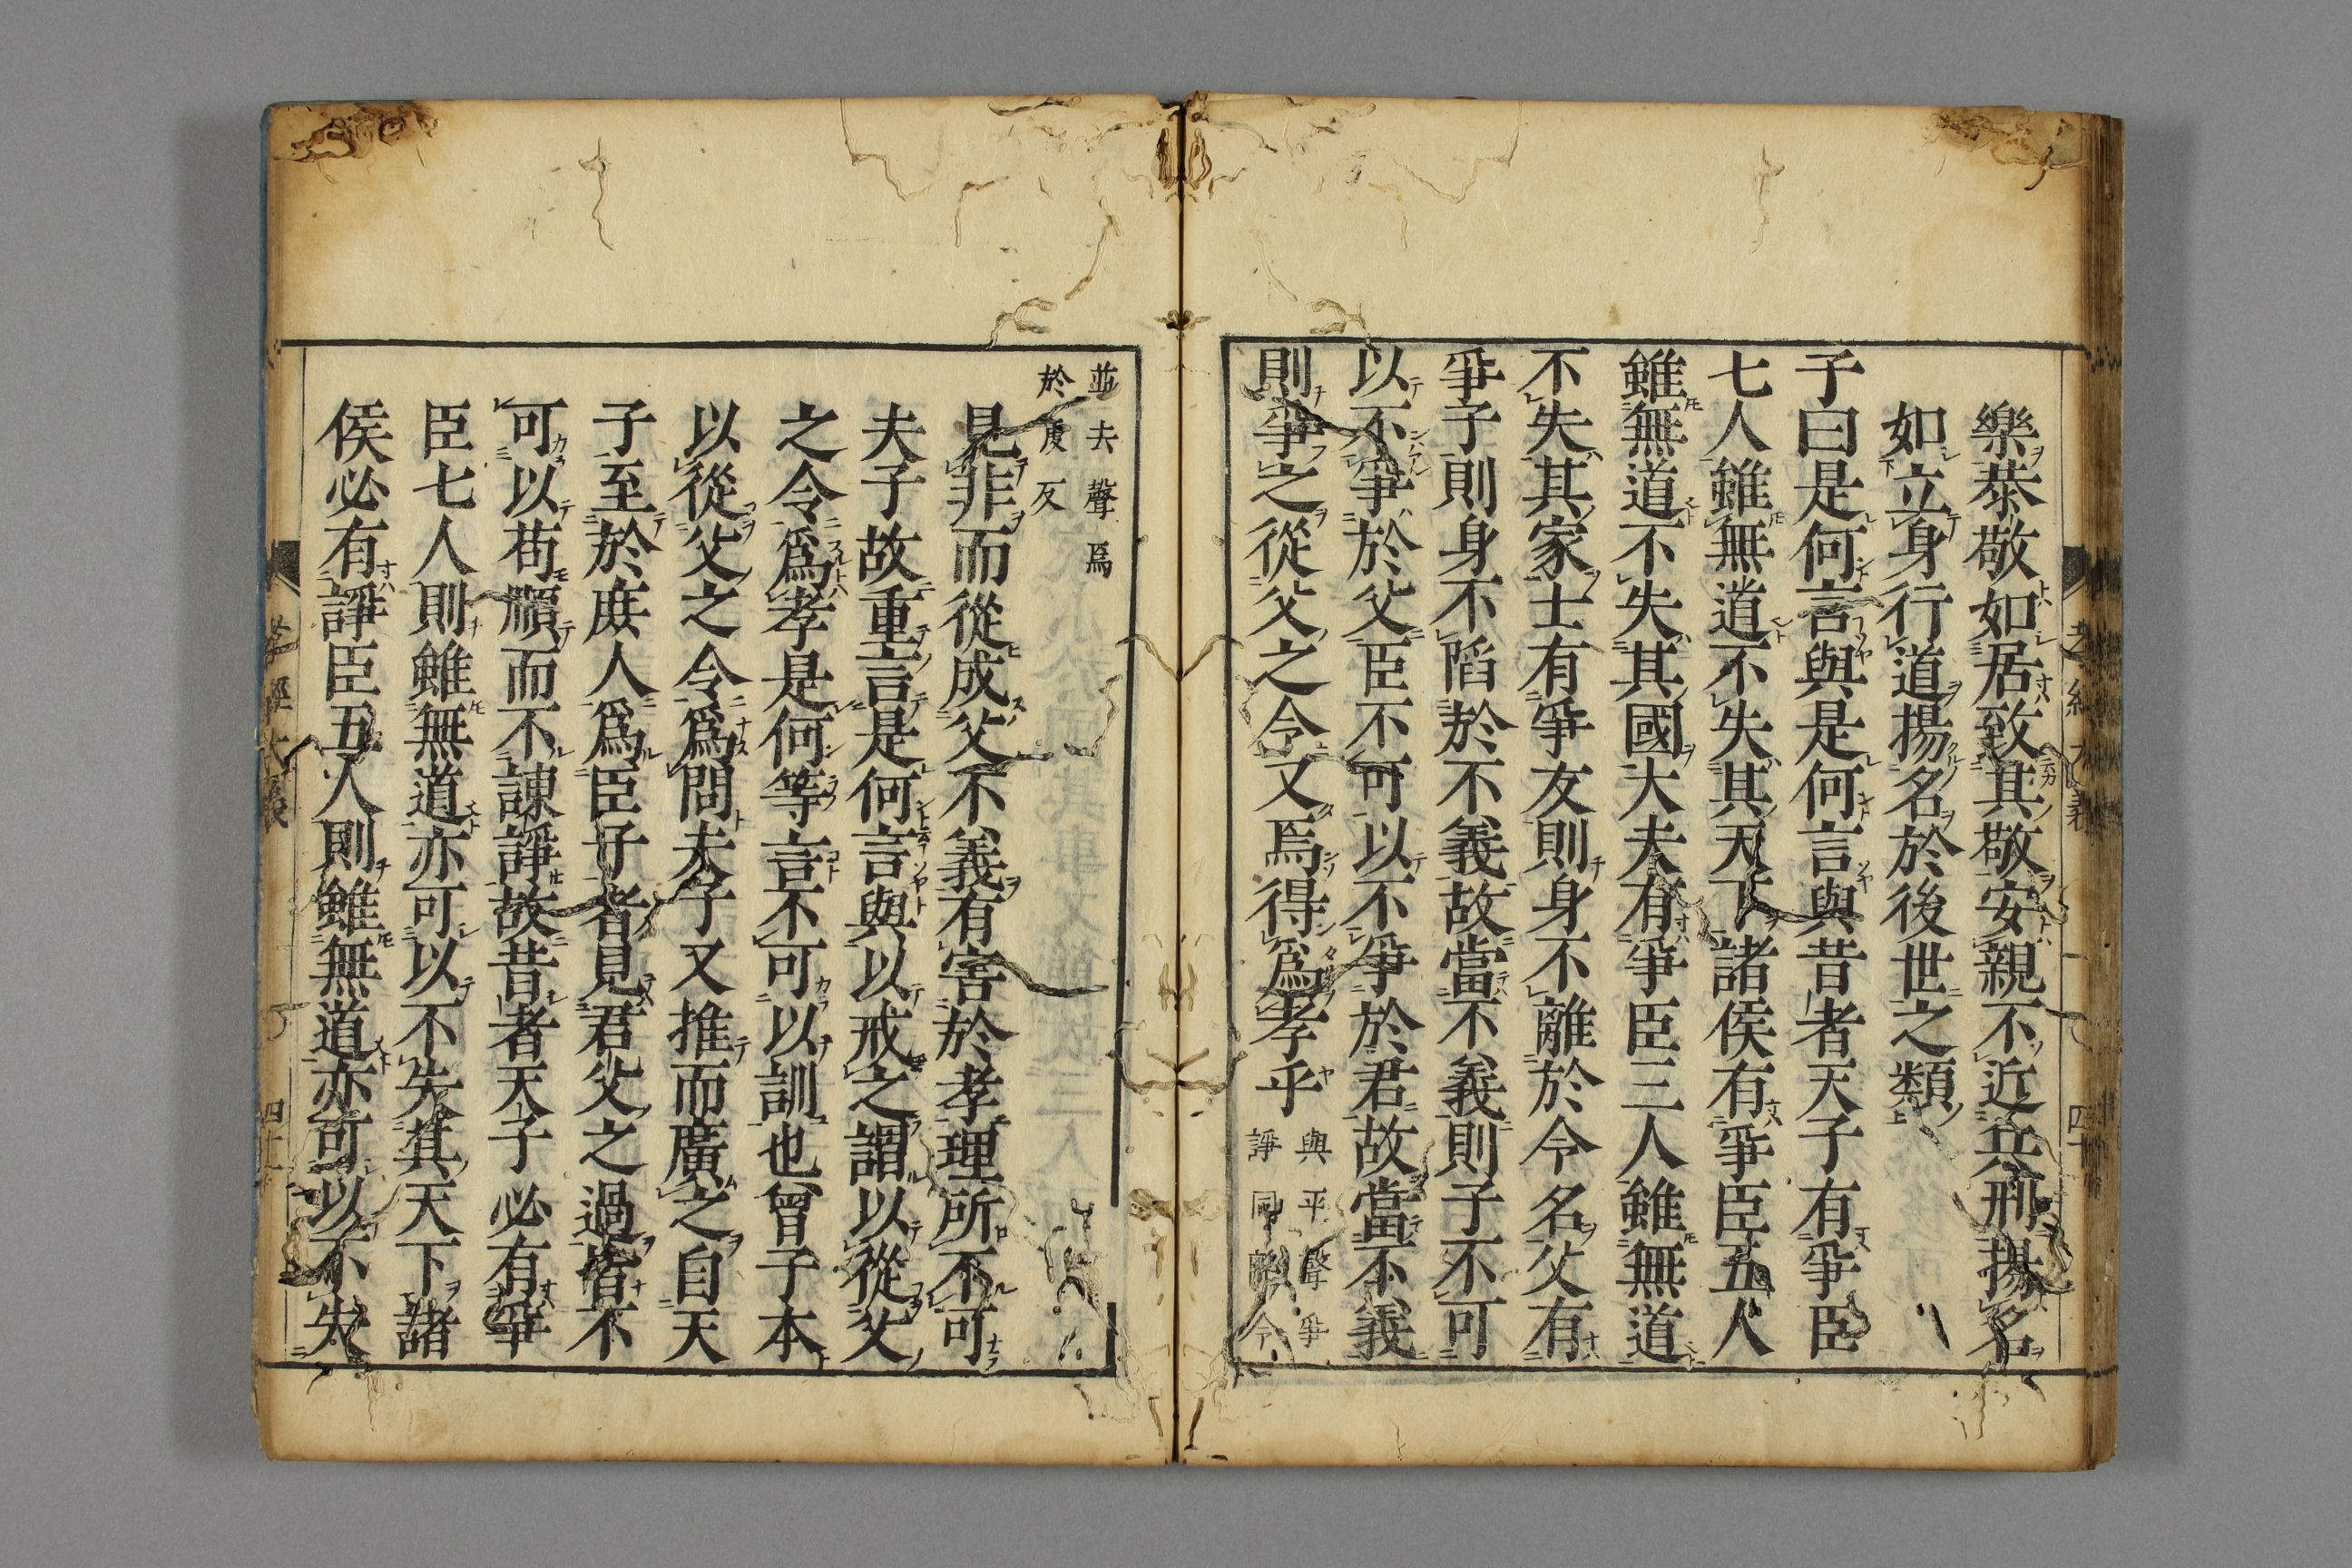 樂恭敬如居致其敬安親不近兵刑揚名
如立身行道揚名於後世之類
子曰是何言與是何言與昔者天子有爭臣
七人雖無道不失其天下諸侯有爭臣五人
雖無道不失其國大夫有爭臣三人雖無道
不失其家士有爭友則身不離於令名父有
爭子則身不陷於不義故當不義則子不可
以不爭於父臣不可以不爭於君故當不義
則爭之從父之令又焉得爲孝乎
與平聲爭
諍同離令
並去聲焉
於虔反
見非而從成父不義有害於孝理所不可
夫子故重言是何言與以戒之謂以從父
之令爲孝是何等言不可以訓也曾子本
以從父之令爲問夫子又推而廣之自天
子至於庶人爲臣子者見君父之過皆不
可以苟順而不諫諍故昔者天子必有爭
臣七人則雖無道亦可以不失其天下諸
侯必有諍臣五人則雖無道亦可以不失